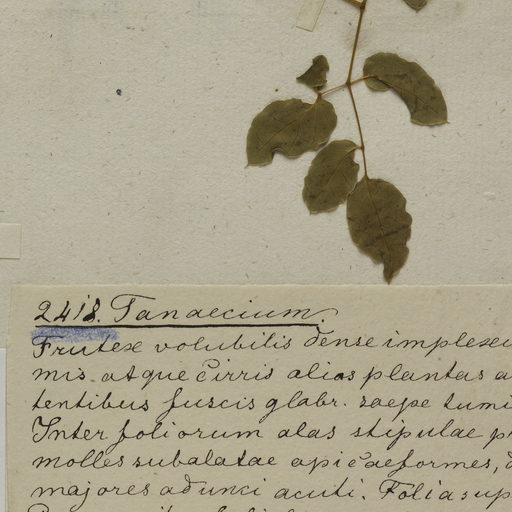 2418. Tanaecium.
Frutex volubilis dense implexu
mis atque cirris alias plantas a
tentibus fuscis glabr. saepe tumi
Inter foliorum alas stipulae p
molles subalatae apicaeformes,
majores adunci acuti. Folia sup